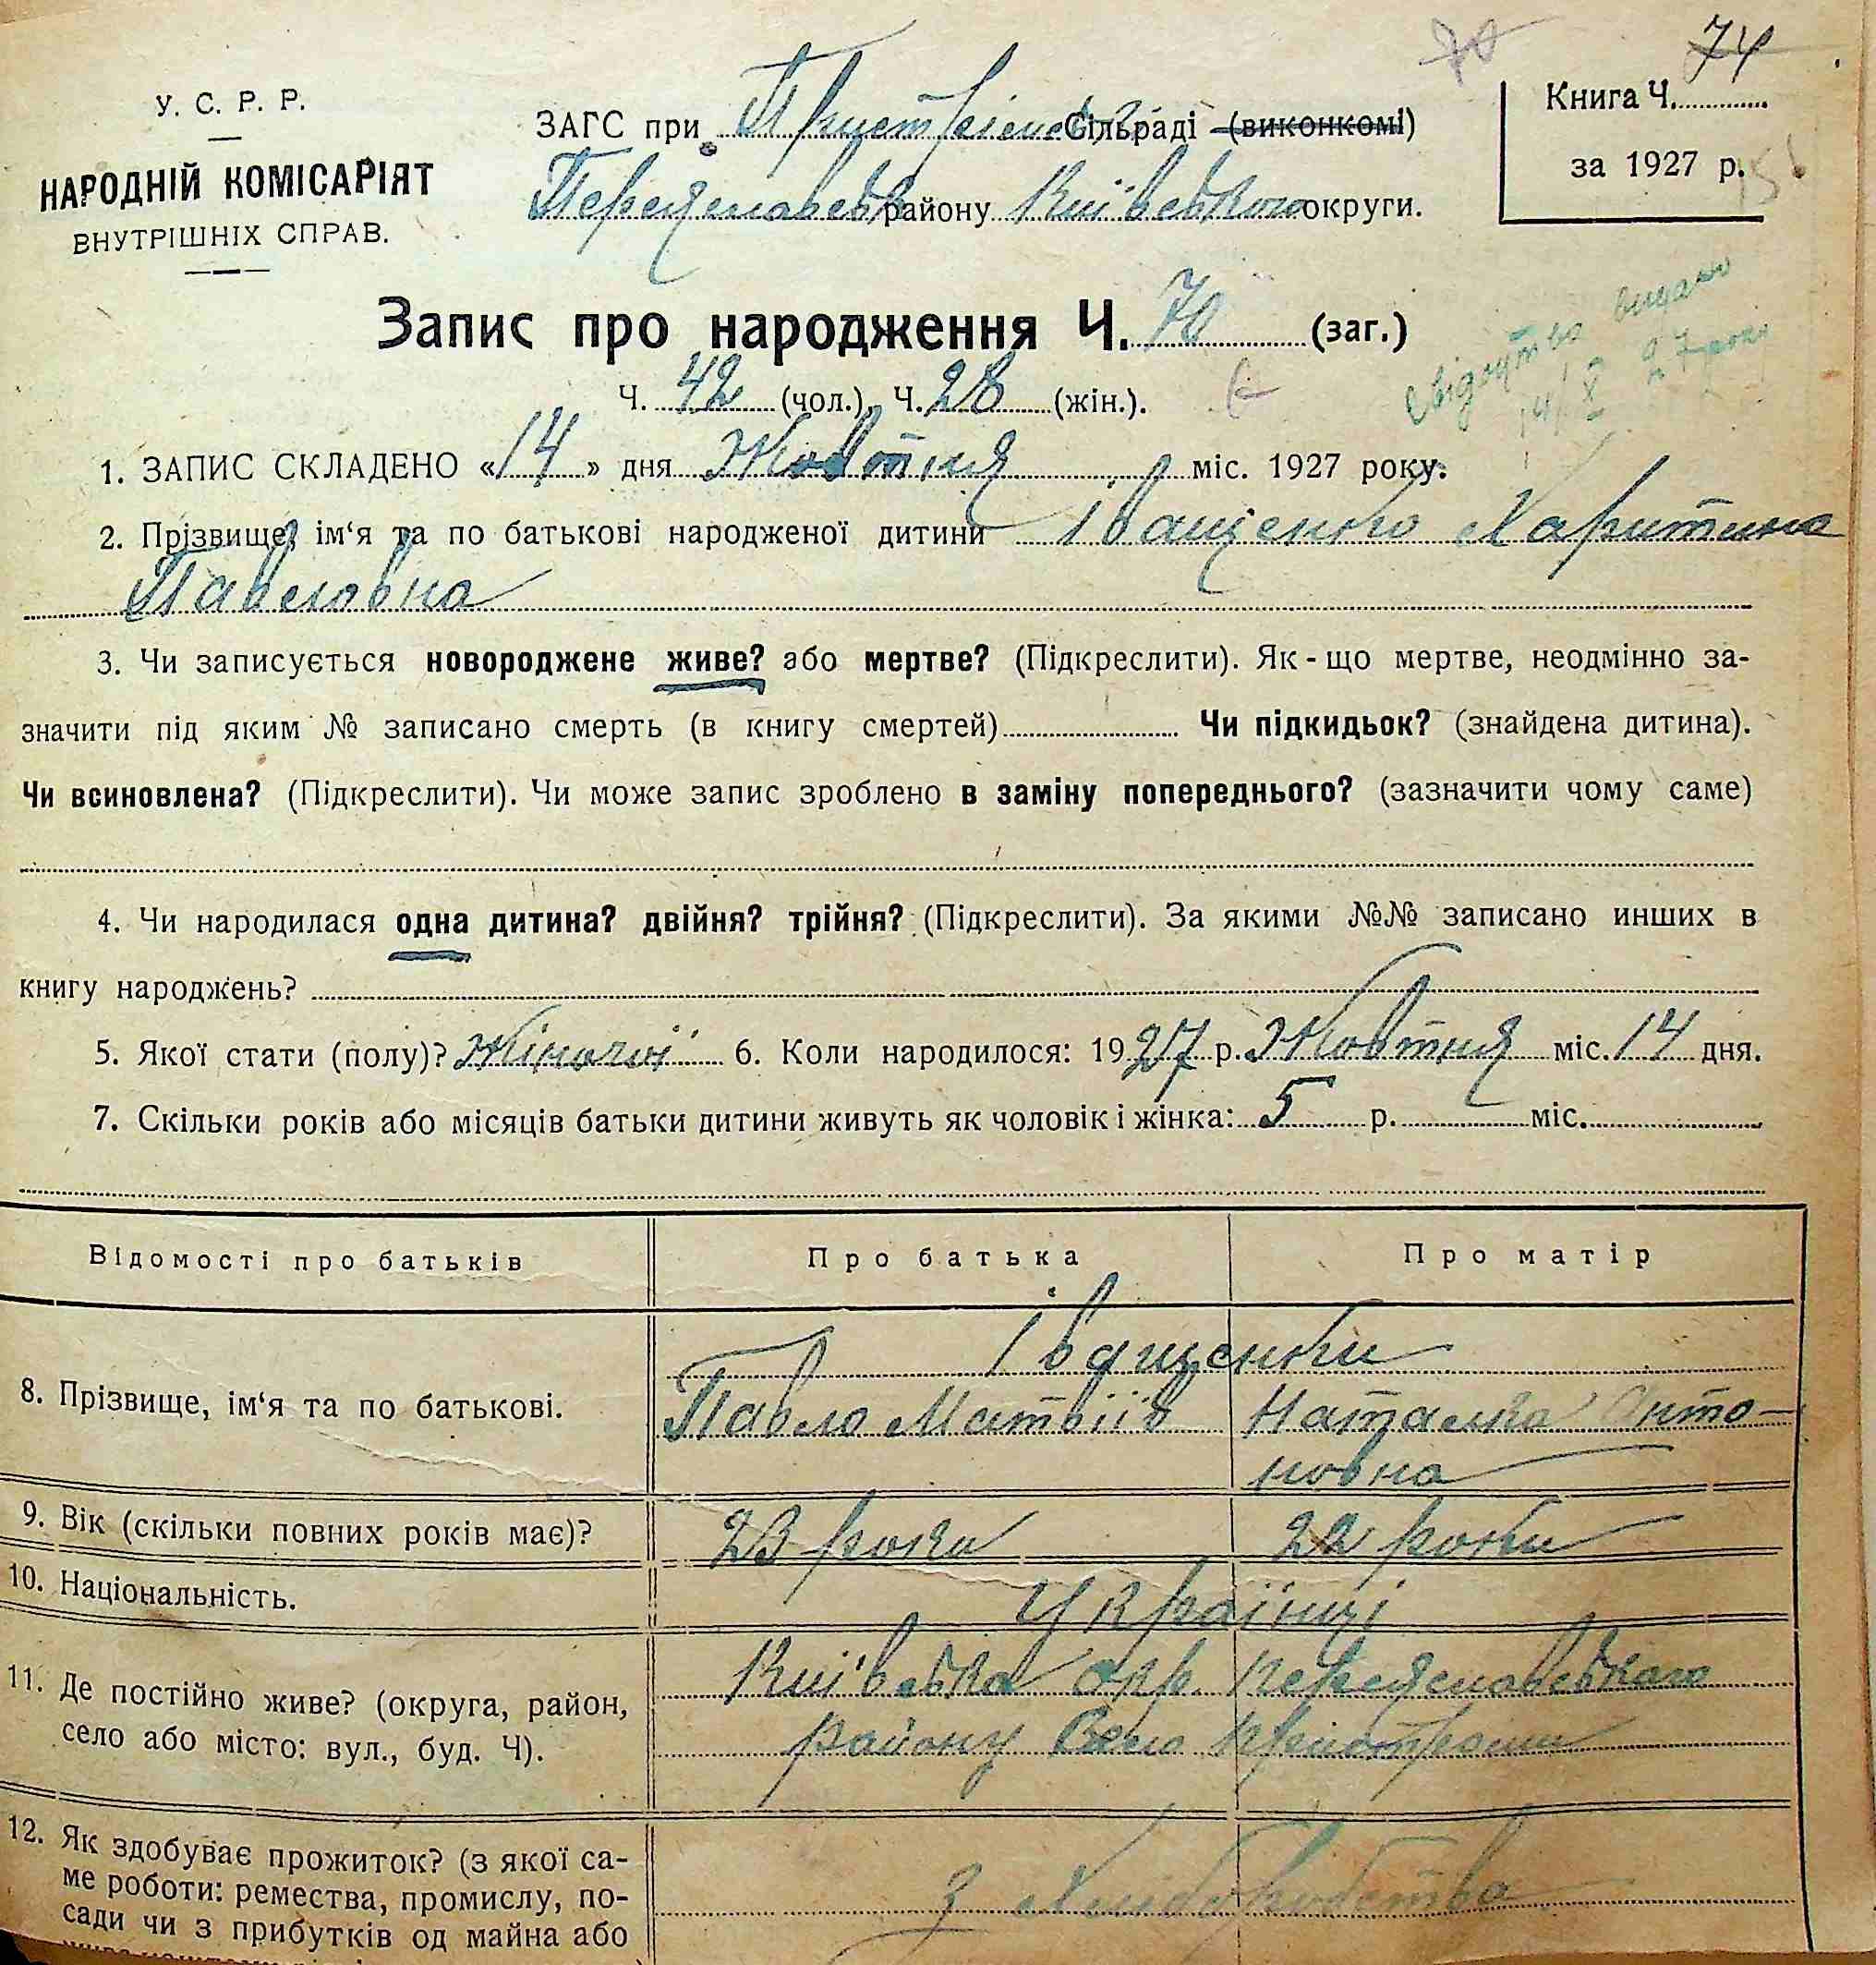 70 74
У. С. Р. Р.
НАРОДНІЙ КОМІСАРІЯТ
ВНУТРІШНІХ СПРАВ.
ЗАГС при Пристр Сільраді (виконкомі)
Переяславськ району Київського округи.
Книга Ч.
за 1927 р.
Запис про народження Ч. 70 (заг.)
Ч. 42 (чол.), Ч. 28 (жін.).
Свідоцтво видано
14/X 27 року
1. ЗАПИС СКЛАДЕНО «14» дня Жовтня міс. 1927 року.
2. Прізвище, ім‘я та по батькові народженої дитини Іващенко Харитина
Павловна
3. Чи записується новороджене живе? або мертве? (Підкреслити). Як-що мертве, неодмінно за-
значити під яким № записано смерть (в книгу смертей) Чи підкидьок? (знайдена дитина).
Чи всиновлена? (Підкреслити). Чи може запис зроблено в заміну попереднього? (зазначити чому саме)
4. Чи народилася одна дитина? двійня? трійня? (Підкреслити). За якими №№ записано инших в
книгу народжень?
5. Якої стати (полу)? Жіночої 6. Коли народилося: 1927 р. Жовтня міс. 14 дня.
7. Скільки років або місяців батьки дитини живуть як чоловік і жінка: 5 р. міс.
Відомості про батьків Про батька Про матір
Іващенки
8. Прізвище, ім‘я та по батькові. Павло Матвіїв Наталка Анто-
новна
9. Вік (скільки повних років має)? 23 роки 22 роки
10. Національність. Українці
11. Де постійно живе? (округа, район,
село або місто: вул., буд. Ч).
Київська окр. Переяславського
району Село Пристроми
12. Як здобуває прожиток? (з якої са-
ме роботи: ремества, промислу, по-
сади чи з прибутків од майна або
З Хлібо